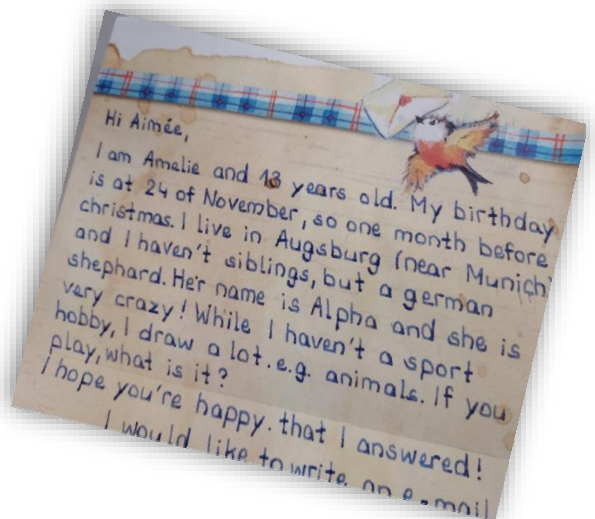 Hi Aimée,
I am Amelie and 13 years old. My birthday
is at 24 of November, so one month before
christmas. I live in Augsburg (near Munich)
and I haven't siblings, but a german
shephard. Her name is Alpha and she is
very crazy! While I haven't a sport
hobby, I draw a lot. e.g. animals. If you
play, what is it?
I hope you're happy. that I answered!
I would like to write an e-mail